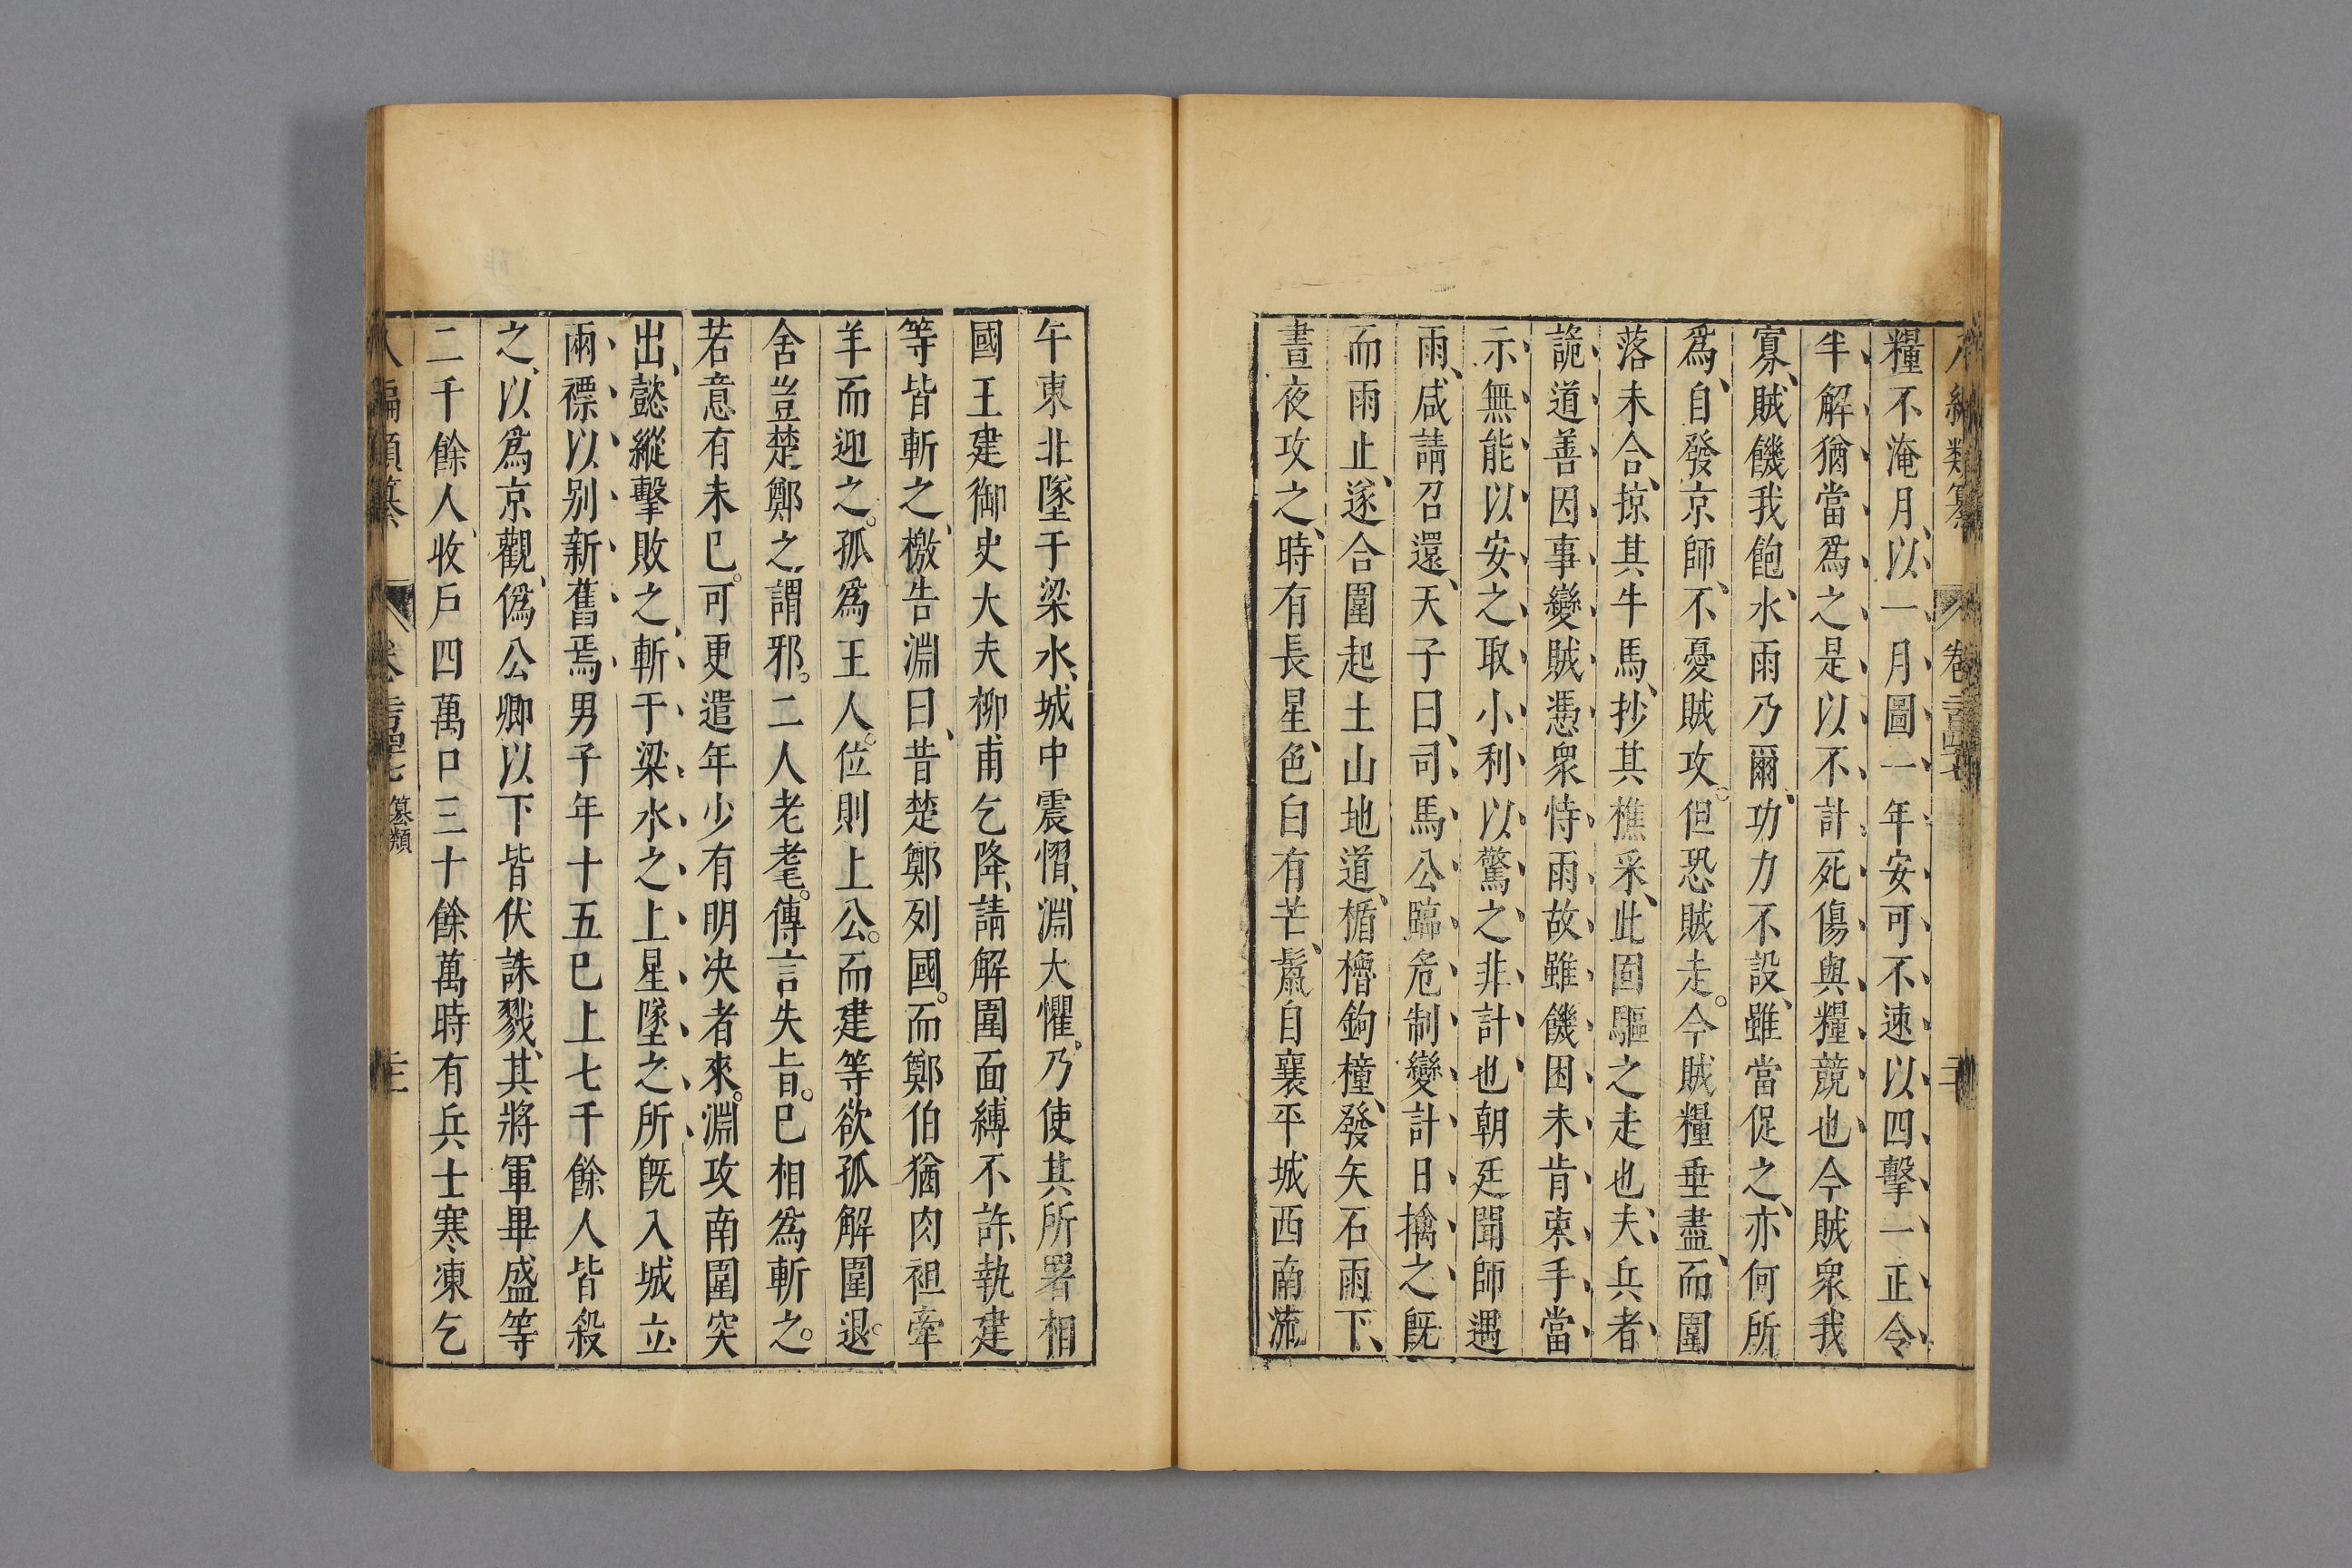 糧不淹月、以一月圖一年安可不速以四擊一正令
半解猶當爲之是以不計死傷與糧競也今賊衆我
寡、賊饑我飽、水雨乃爾、功力不設、雖當促之、亦何所
爲、自發京師、不憂賊攻。但恐賊走。今賊糧垂盡、而圍
落未合、掠其牛馬、抄其樵采、此固驅之走也、夫兵者、
詭道善因事變賊憑衆恃雨故雖饑困未肯束手當
示無能以安之取小利以驚之非計也朝廷聞師遇
雨、咸請召還、天子曰、司馬公臨危制變計日擒之既
而雨止、遂合圍起土山地道、楯櫓鉤橦、發矢石雨下、
晝夜攻之、時有長星、色白有芒、鬣自襄平城西南流
午東北墜于梁水、城中震慴、淵大懼。乃使其所署相
國王建御史大夫柳甫乞降、請解圍面縛不許執建
等皆斬之、檄告淵曰、昔楚鄭列國。而鄭伯猶肉袒牽
羊而迎之。孤爲王人。位則上公。而建等欲孤解圍退。
舍豈楚鄭之謂邪。二人老耄。傳言失旨。已相爲斬之。
若意有未已。可更遣年少有明决者來。淵攻南圍突
出、懿縱擊敗之、斬于梁水之上星墜之所既入城立
兩標以别新舊焉男子年十五已上七千餘人皆殺
之、以爲京觀、僞公卿以下皆伏誅戮、其將軍畢盛等
二千餘人、收戶四萬口三十餘萬時有兵士寒凍乞
編類纂 卷 纂類